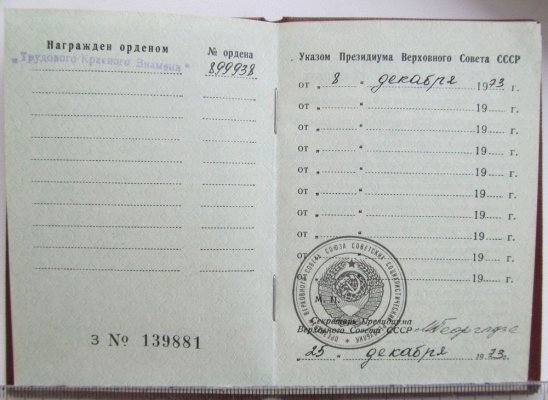 Награжден орденом
№ ордена
„Трудового Красного Знамени"
899938
З № 139881
Указом Президиума Верховного Совета СССР
от „ 8 " декабря 1973 г.
от „ " 19 г.
от „ " 19 г.
от „ " 19 г.
от „ " 19 г.
от „ " 19 г.
от „ " 19 г.
от „ " 19 г.
от „ " 19 г.
от „ " 19 г.
ВЕРХОВНОГО СОВЕТА СОЮЗА СОВЕТСКИХ СОЦИАЛИСТИЧЕСКИХ
М. П.
Секретарь Президиума
Верховного Совета СССР
МГеоргадзе
„ 25 " декабря 1973 г.